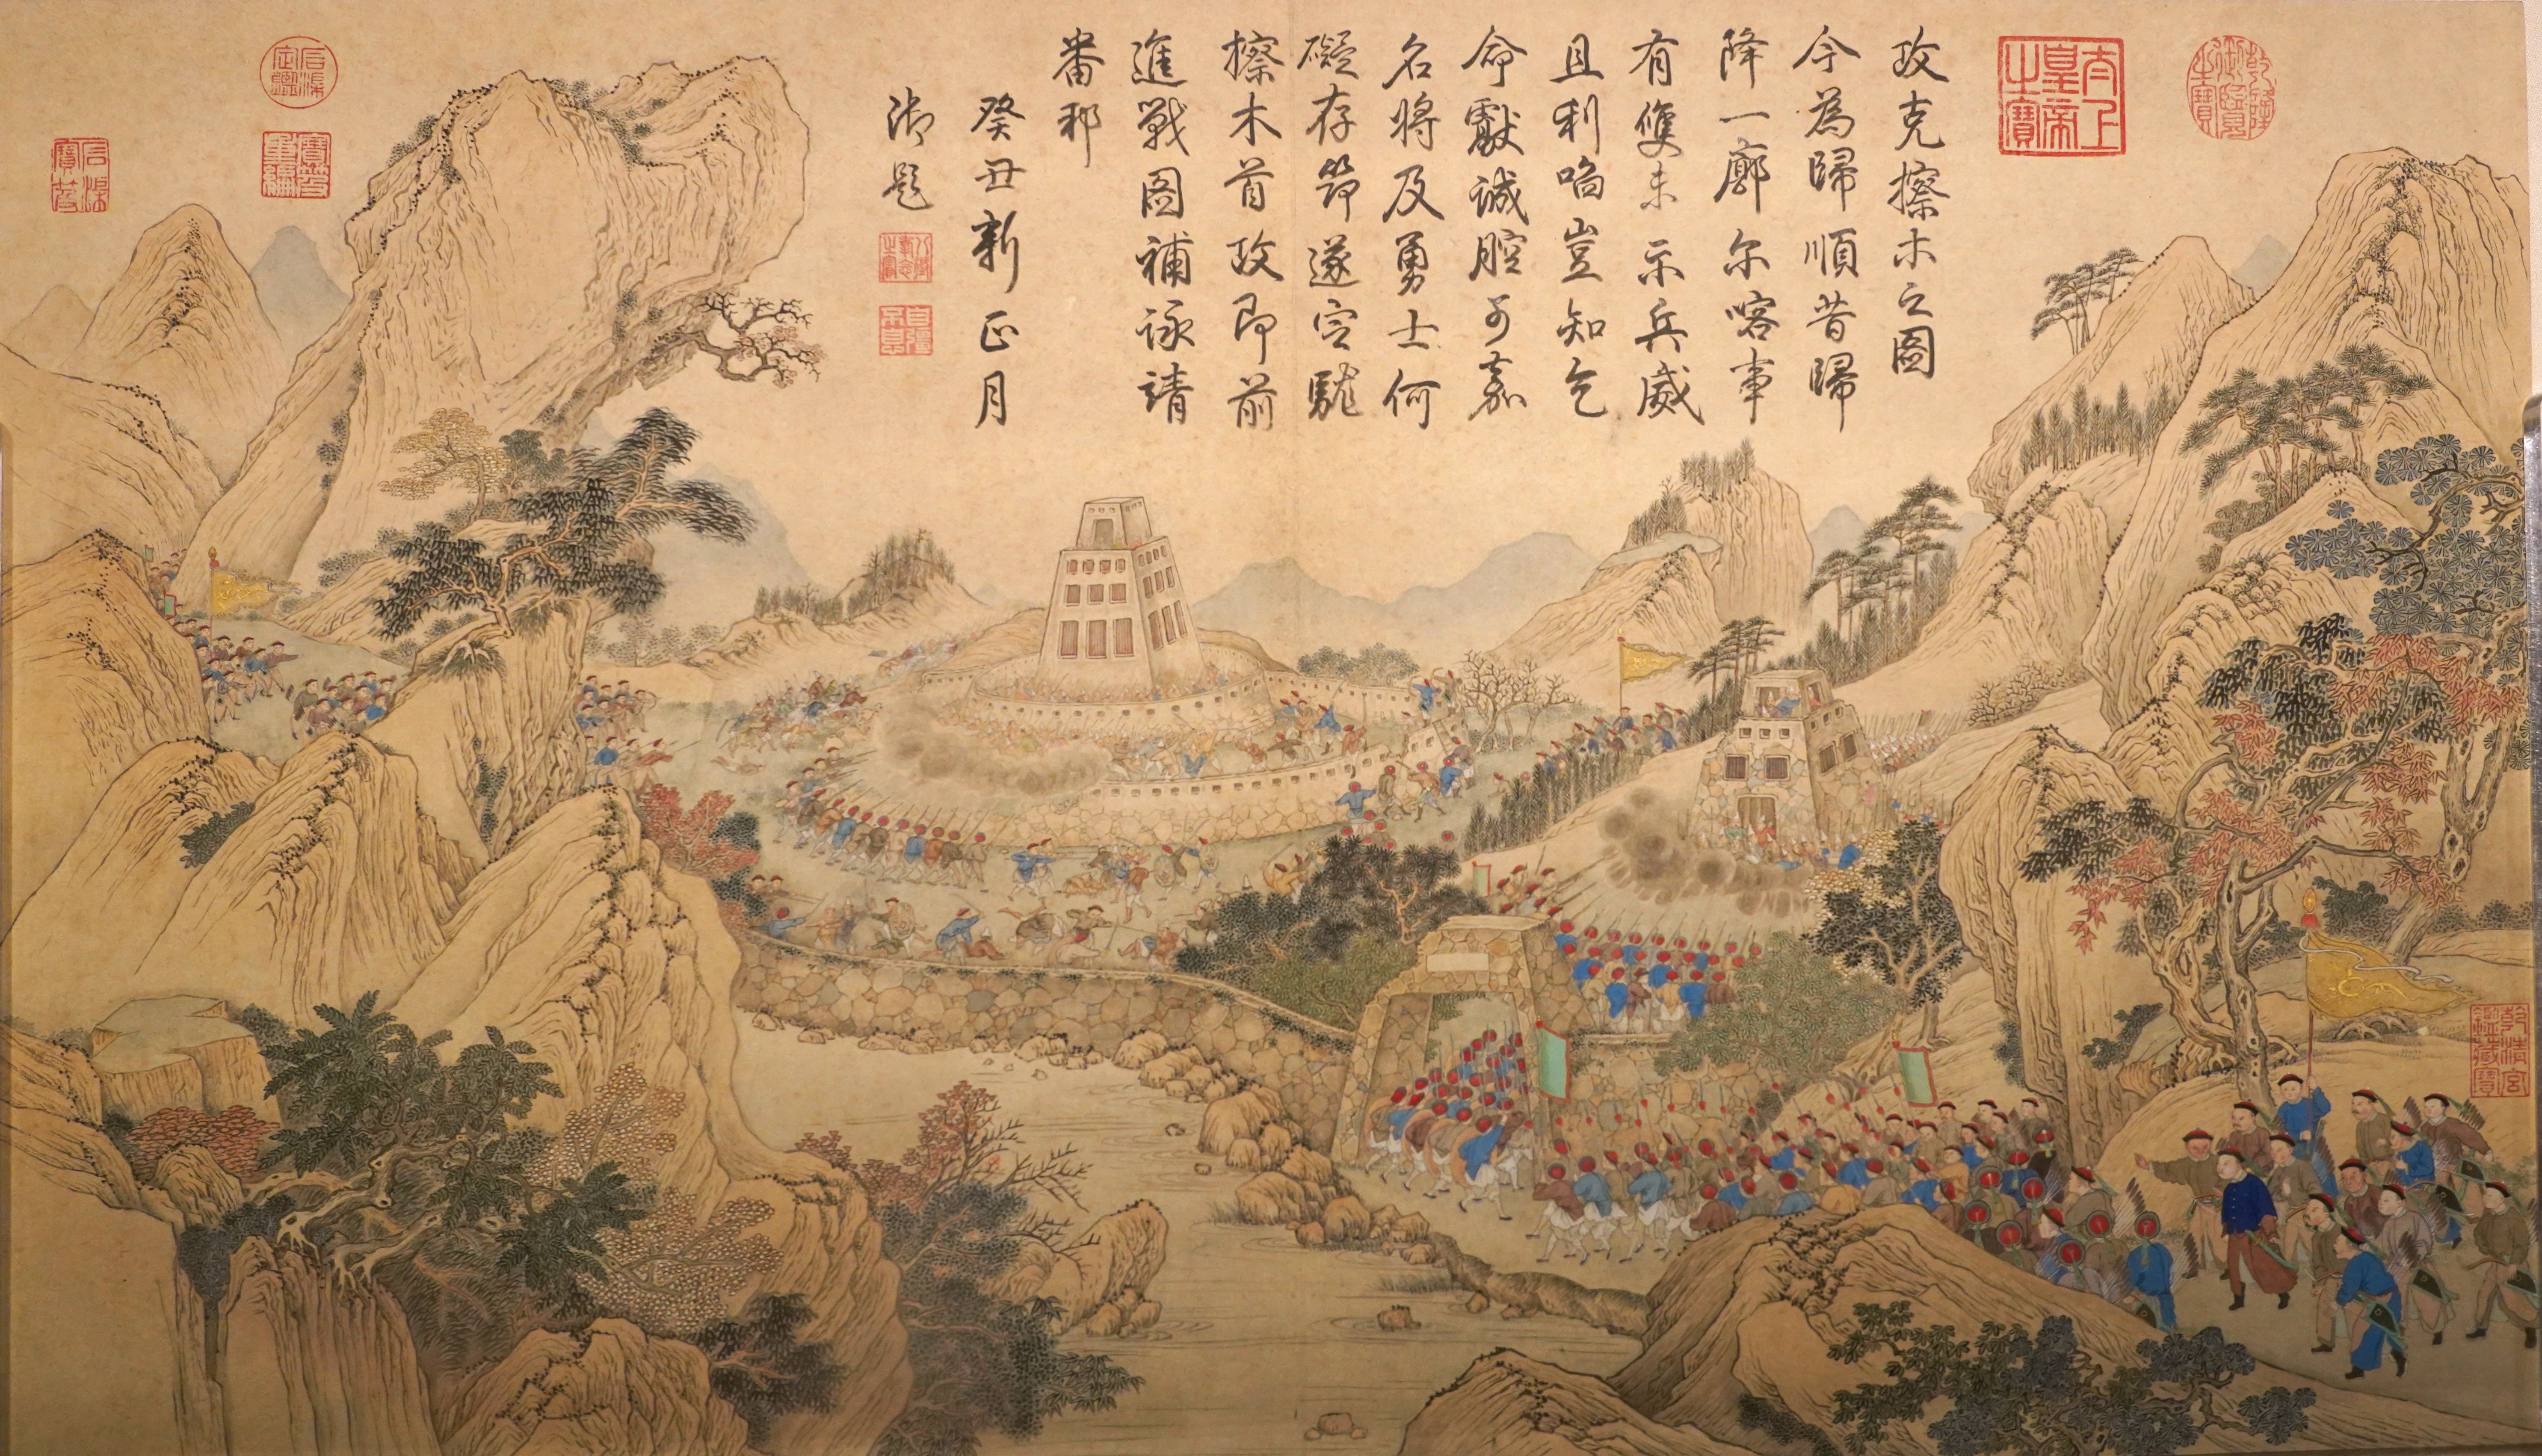 攻克擦木之圖
今為歸順昔歸
降一廓尔喀事
有雙未示兵威
且利啗豈知乞
命獻誠腔可嘉
名將及勇士何
礙存筇遂窒駹
擦木首攻即前
進戰圖補詠請
番邦
癸丑新正月
御題
太上皇帝之寶
乾隆御覽之寶
八徵耄念之寶
自彊不息
石渠定鑑
寶笈重編
石渠寶笈
乾清宮鑑藏寶